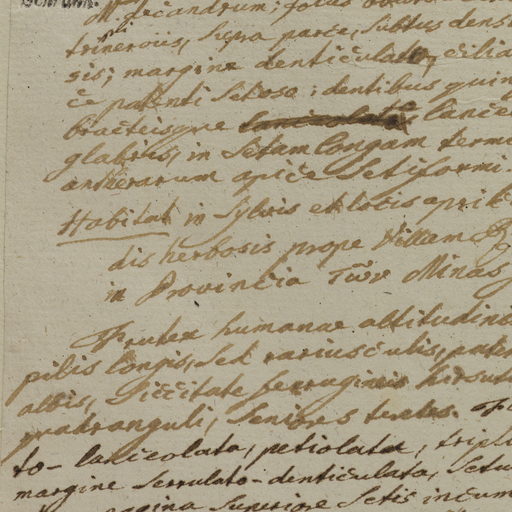 M. fecandrum: foliis
trinerviis, supra parce, subtus dens
sis; margine denticulato, cilia
ce patenti setoso: dentibus quin
bracteisque lanceolatis lance
glabris, in setam longam termi
antherarum apice setiformi.
Habitat in sylvis et locis apri
dis herbosis prope Villam
in Provincia Minas
Frutex humanae altitudinis
pilis longis, sed rariusculis, paten
albis, siccitate ferrugineis hirsut
quadranguli, seniores teretes.
to-lanceolata, petiolata, tripli
margine serrulato-denticulata, setu
pagina superiore setis incum